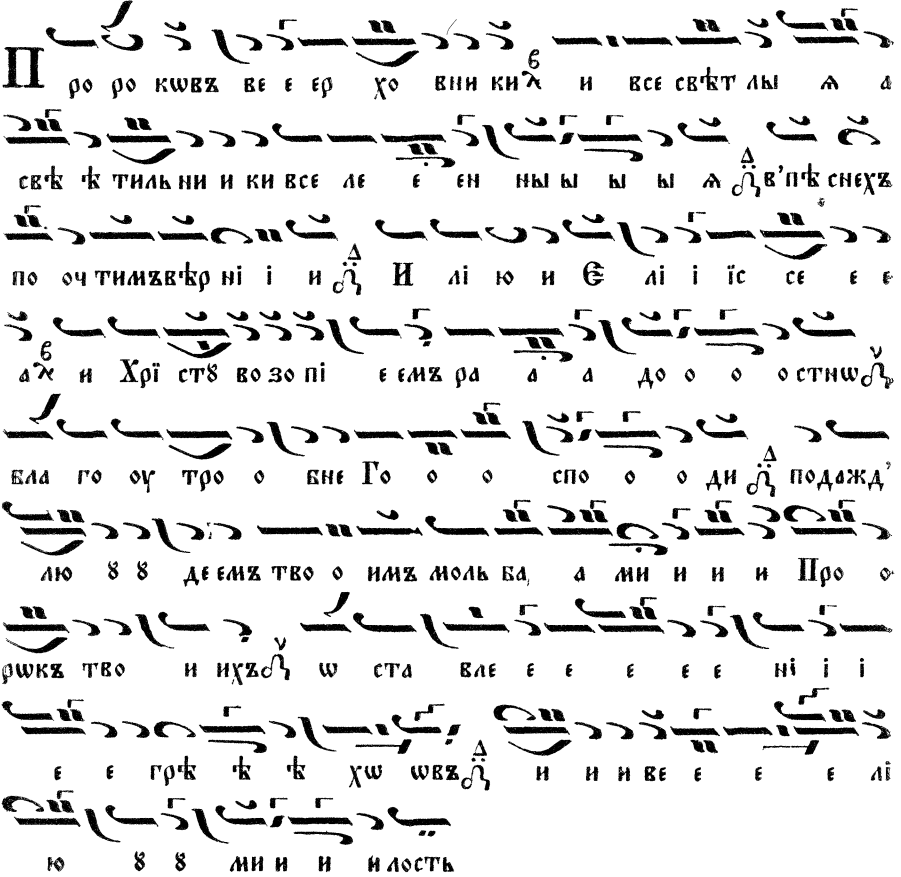 Про ро кѡвъ ве е ер хо вни ки и все свѣт лы ѧ а
свѣ ѣ тиль ни и ки все ле е ен ны ы ы ы ѧ в’пѣ снехъ
по оч тимъ вѣр ні і и И лі ю и Є лі і їс се е е
а и Хрї стꙋ во зо пі е емъ ра а а до о о о стнѡ
бла го оу тро о бне Го о о спо о о ди подажд’
лю ꙋ ꙋ де емъ тво о имъ моль ба, а ми и и и Про о
рѡкъ тво и ихъ ѡ ста вле е е е е е ні і і
е е грѣ ѣ ѣ хѡ ѡвъ и и и ве е е е лі
ю ꙋ ꙋ ми и и и лость